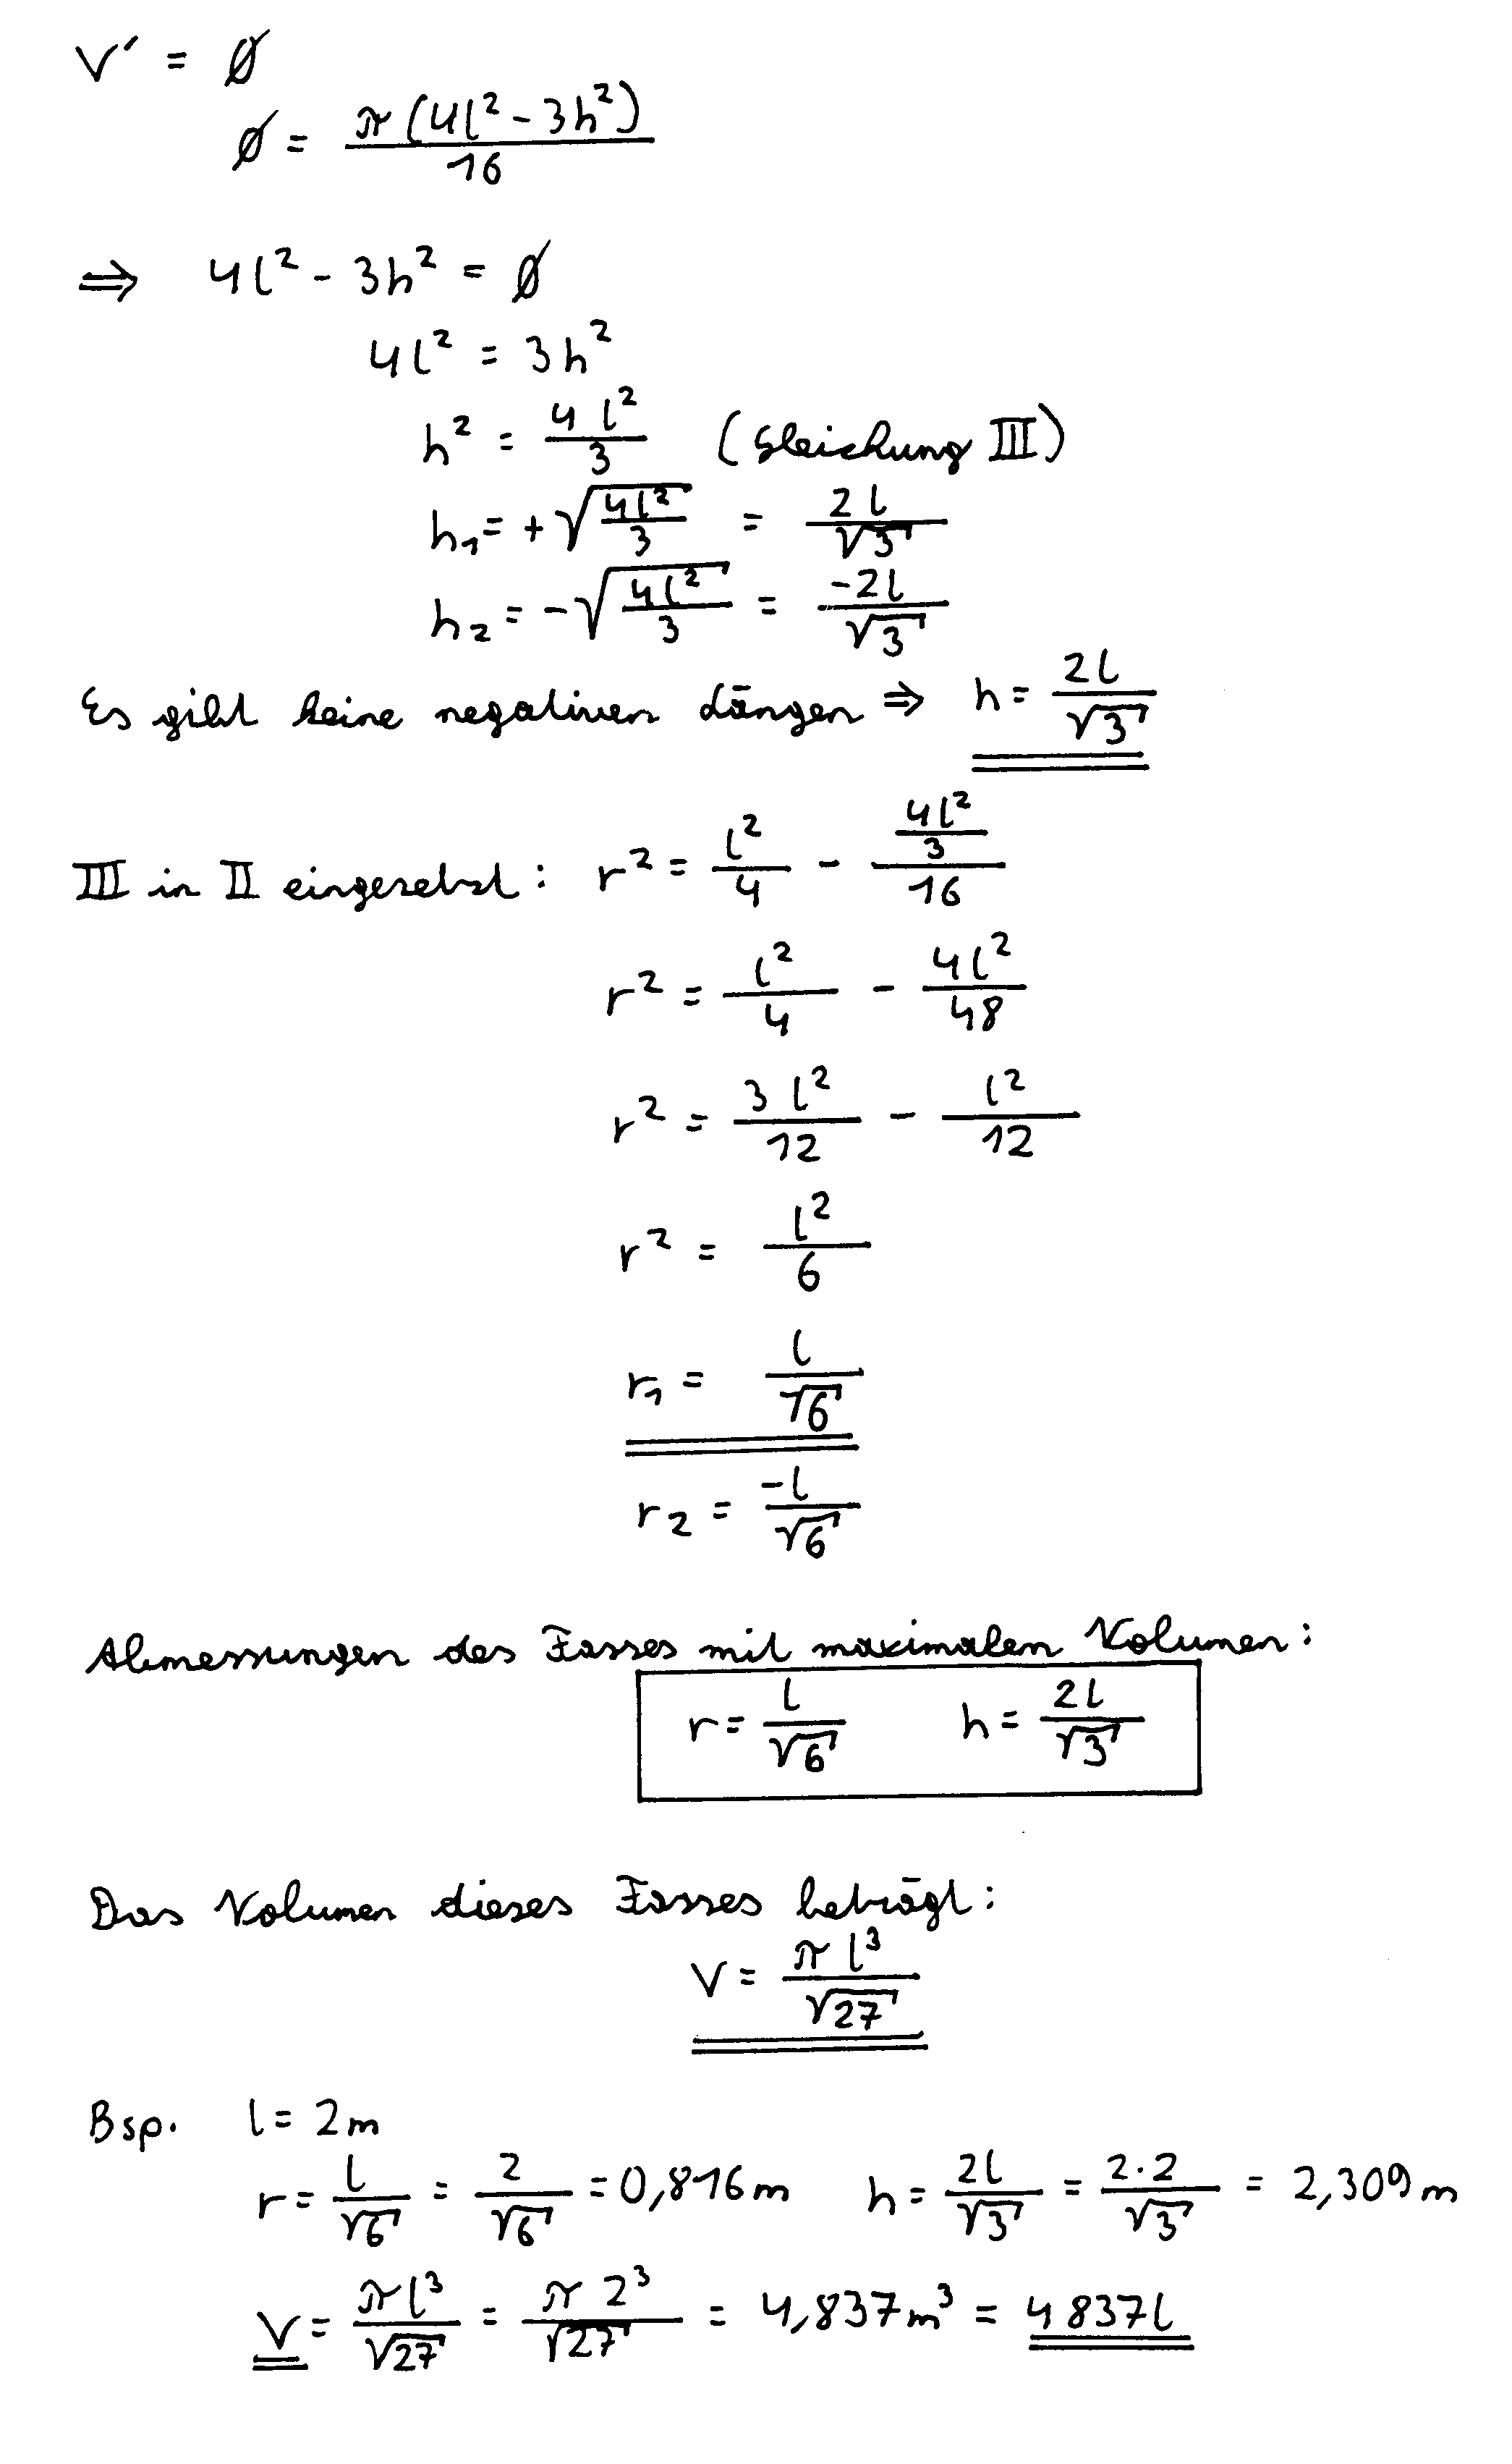 V' = 0
0 = π(4l² - 3h²) / 16
⇒ 4l² - 3h² = 0
4l² = 3h²
h² = 4l²/3 (Gleichung III)
h₁ = +√(4l²/3) = 2l/√3
h₂ = -√(4l²/3) = -2l/√3
Es gibt keine negativen Längen ⇒ h = 2l/√3
III in II eingesetzt: r² = l²/4 - (4l²/3)/16
r² = l²/4 - 4l²/48
r² = 3l²/12 - l²/12
r² = l²/6
r₁ = l/√6
r₂ = -l/√6
Abmessungen des Fasses mit maximalen Volumen:
r = l/√6 h = 2l/√3
Das Volumen dieses Fasses beträgt:
V = πl³/√27
Bsp. l = 2m
r = l/√6 = 2/√6 = 0,816m h = 2l/√3 = 2·2/√3 = 2,309m
V = πl³/√27 = π2³/√27 = 4,837m³ = 4837l